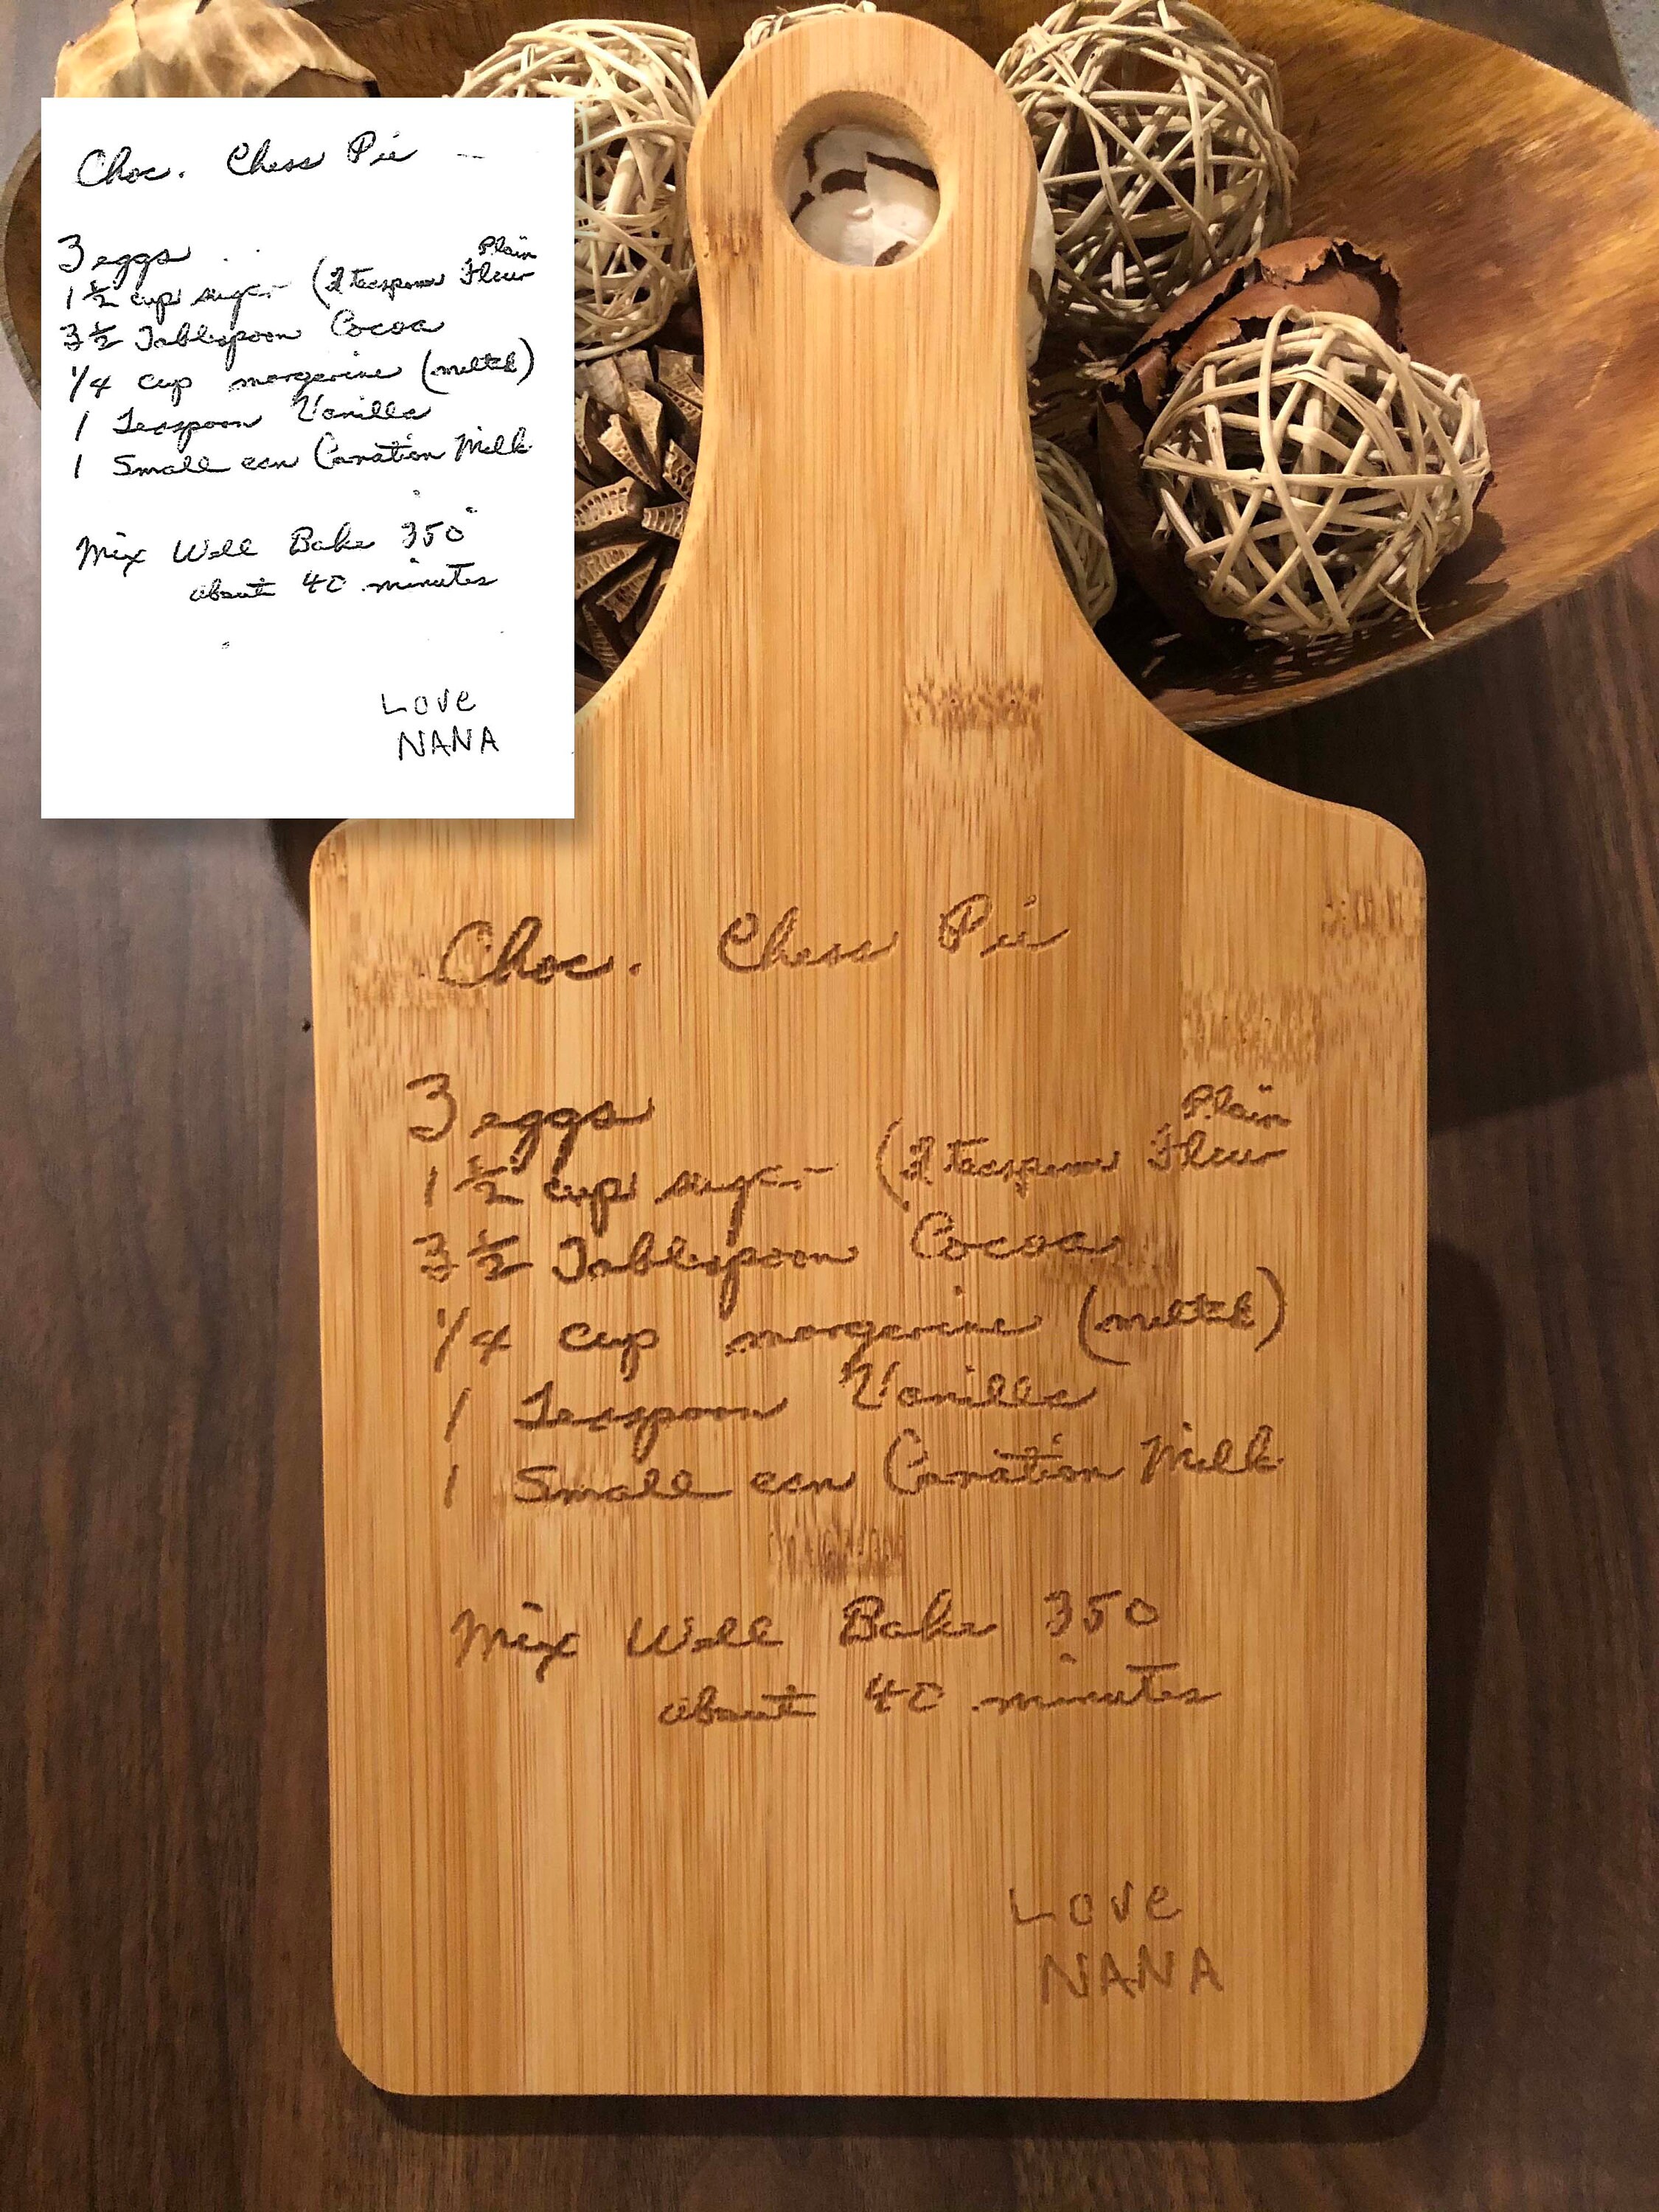 Choc. Chess Pie
3 eggs
1 1/2 cup sugar (2 teaspoons Plain Flour
3 1/2 Tablespoon Cocoa
1/4 cup margerine (melted)
1 Teaspoon Vanilla
1 Small can Carnation Milk
Mix Well Bake 350°
about 40 minutes
LOVE
NANA
Choc. Chess Pie
3 eggs
1 1/2 cup sugar (2 teaspoons Plain Flour
3 1/2 Tablespoon Cocoa
1/4 cup margerine (melted)
1 Teaspoon Vanilla
1 Small can Carnation Milk
Mix Well Bake 350
about 40 minutes
LOVE
NANA